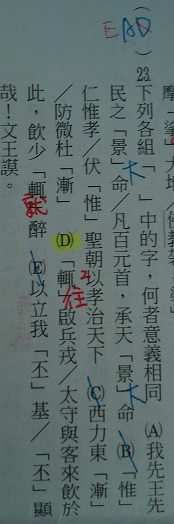 EAD
( )
摩「挲」大地
佛教
23.下列各組「 」中的字，何者意義相同 (A)我先王先
民之「景」命／凡百元首，承天「景」命 (B)「惟」
大
大
仁惟孝／伏「惟」聖朝以孝治天下 (C)西力東「漸」
／防微杜「漸」 (D)「輒」啟兵戎／太守與客來飲於
往
此，飲少「輒」醉 (E)以立我「丕」基／「丕」顯
就
哉！文王謨。